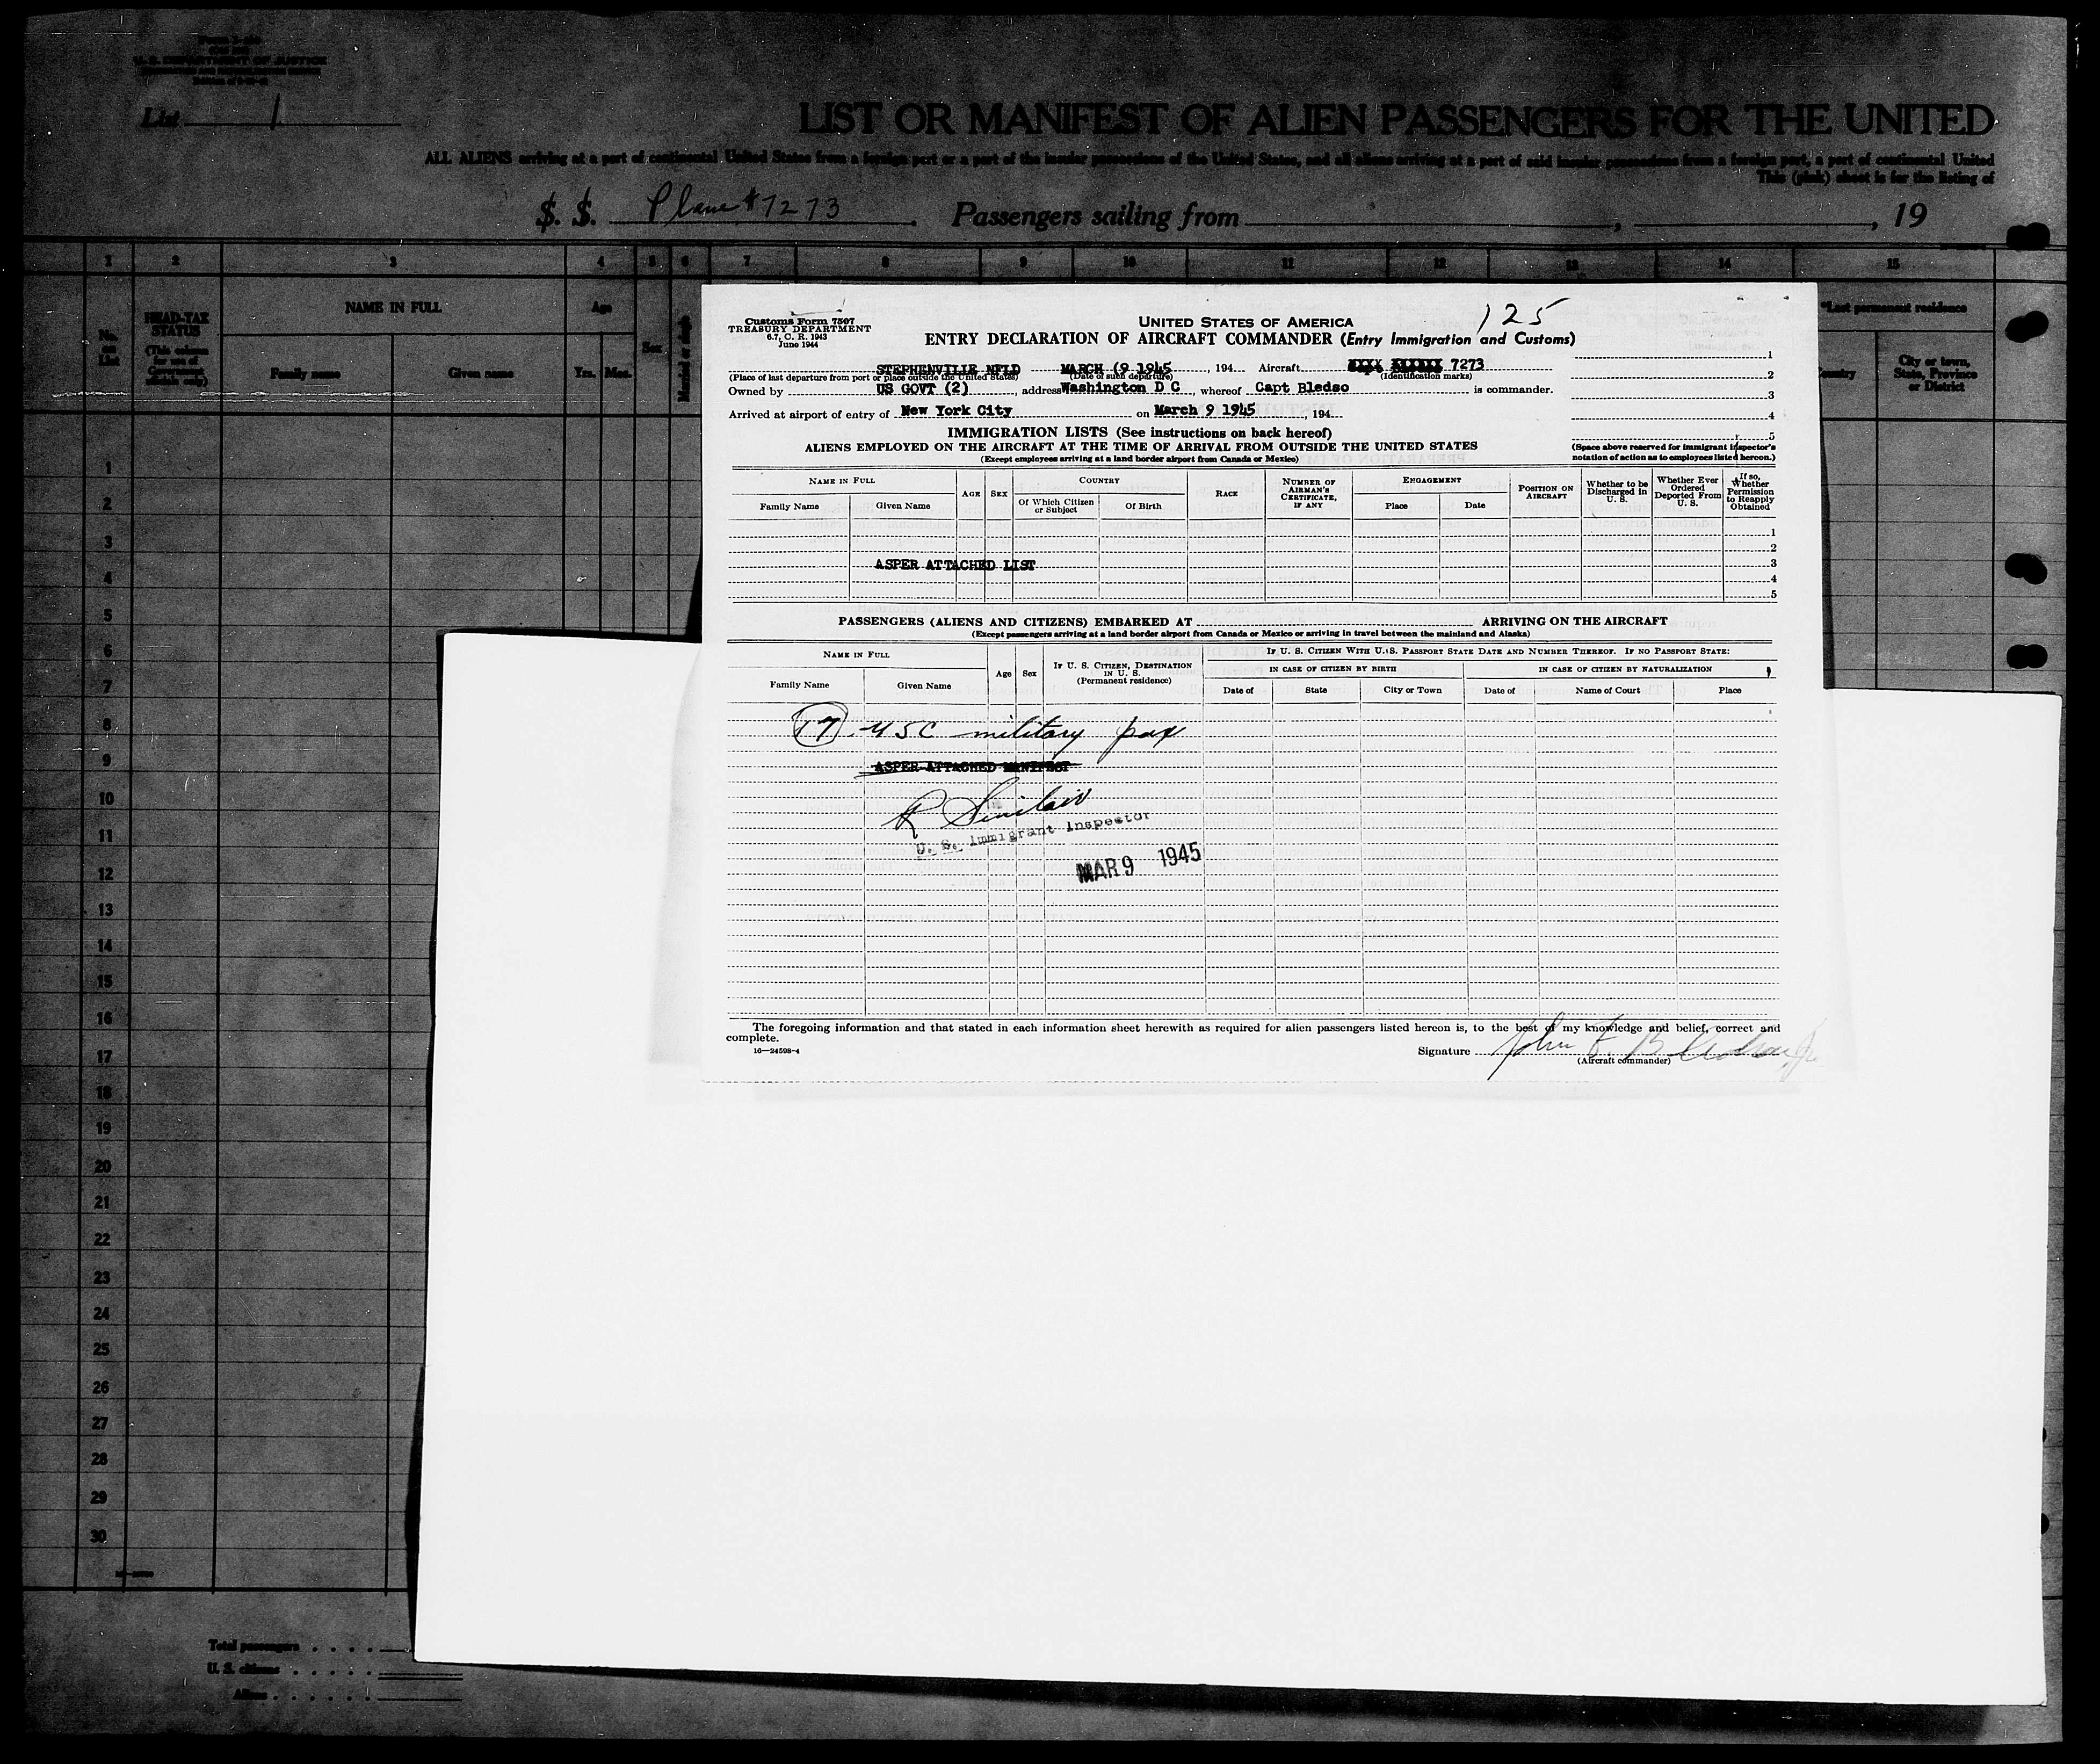 U. S. DEPARTMENT OF JUSTICE
List 1
LIST OR MANIFEST OF ALIEN PASSENGERS FOR THE UNITED
ALL ALIENS arriving at a port of continental United States from a foreign port or a port of the insular possessions of the United States, and all aliens arriving at a port of said insular possessions from a foreign port, a port of continental United
This (pink) sheet is for the listing of
S. S. Plane #7273 Passengers sailing from , , 19
1 2 3 4 5 6 7 8 9 10 11 12 13 14 15
No. on List
HEAD-TAX STATUS
(This column for use of Government officials only)
NAME IN FULL
Family name Given name
Age
Yrs. Mos.
Sex
Married or single
*Last permanent residence
Country
City or town, State, Province or District
Customs Form 7507
TREASURY DEPARTMENT
6.7, C. R. 1943
June 1944
UNITED STATES OF AMERICA
125
ENTRY DECLARATION OF AIRCRAFT COMMANDER (Entry Immigration and Customs)
STEPHENVILLE NFLD MARCH (9 1945, 194 Aircraft 7273
(Place of last departure from port or place outside the United States) (Date of such departure) (Identification marks)
Owned by US GOVT (2), address Washington D C, whereof Capt Bledso is commander.
Arrived at airport of entry of New York City on March 9 1945, 194
1
2
3
4
5
(Space above reserved for immigrant inspector's notation of action as to employees listed hereon.)
IMMIGRATION LISTS (See instructions on back hereof)
ALIENS EMPLOYED ON THE AIRCRAFT AT THE TIME OF ARRIVAL FROM OUTSIDE THE UNITED STATES
(Except employees arriving at a land border airport from Canada or Mexico)
NAME IN FULL
Family Name Given Name
AGE SEX
COUNTRY
Of Which Citizen or Subject Of Birth
RACE
NUMBER OF AIRMAN'S CERTIFICATE, IF ANY
ENGAGEMENT
Place Date
POSITION ON AIRCRAFT
Whether to be Discharged in U. S.
Whether Ever Ordered Deported From U. S.
If so, Whether Permission to Reapply Obtained
1
2
ASPER ATTACHED LIST 3
4
5
PASSENGERS (ALIENS AND CITIZENS) EMBARKED AT ARRIVING ON THE AIRCRAFT
(Except passengers arriving at a land border airport from Canada or Mexico or arriving in travel between the mainland and Alaska)
NAME IN FULL
Family Name Given Name
Age Sex
IF U. S. CITIZEN, DESTINATION IN U. S.
(Permanent residence)
IF U. S. CITIZEN WITH U. S. PASSPORT STATE DATE AND NUMBER THEREOF. IF NO PASSPORT STATE:
IN CASE OF CITIZEN BY BIRTH IN CASE OF CITIZEN BY NATURALIZATION
Date of State City or Town Date of Name of Court Place
17 USC military pax
ASPER ATTACHED MANIFEST
R Sinclair
U. S. Immigrant Inspector
MAR 9 1945
The foregoing information and that stated in each information sheet herewith as required for alien passengers listed hereon is, to the best of my knowledge and belief, correct and
complete.
16—24598-4
Signature John F. Bledsoe Jr
(Aircraft commander)
1
2
3
4
5
6
7
8
9
10
11
12
13
14
15
16
17
18
19
20
21
22
23
24
25
26
27
28
29
30
Total passengers
U. S. citizens
Aliens